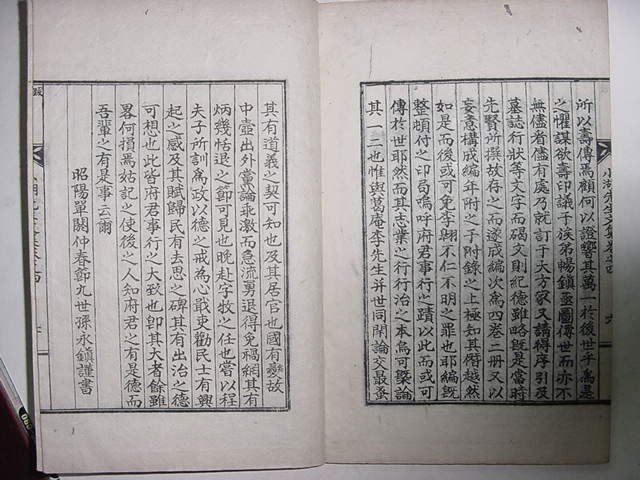 所以壽傳焉顧何以證響其萬一於後世乎焉是
之懼謀欲壽印議于族弟暢鎭亟圖傳世而亦不
無儘者儘有處乃就訂于大方家又請得序引及
墓誌行狀等文字而碣文則紀德雖略旣是當時
先賢所撰故存之而遂成編次焉四卷二册又以
妄意構成編年附之于附錄之上極知其僭越然
如是而後或可免李翶不仁不明之罪也耶編旣
整頓付之印局嗚呼府君事行之蹟以此而或可
傳於世耶然而其志業之行行治之本烏可槩論
其一二也惟與葛庵李先生并世同閈論交最蚤
其有道義之契可知也及其居官也國有變故
中壼出外當論乖激而急流勇退得免禍網其有
炳幾恬退之節可見也晩赴字牧之任也嘗以程
夫子所訓爲政以德之戒爲心戢吏勸民士有興
起之感及其賦歸民有去思之碑其有出治之德
可想也此皆府君事行之大致也卽其大者餘雖
畧何損焉姑記之使後之人知府君之有是德而
吾輩之有是事云爾
昭陽單閼仲春節九世孫永鎭謹書